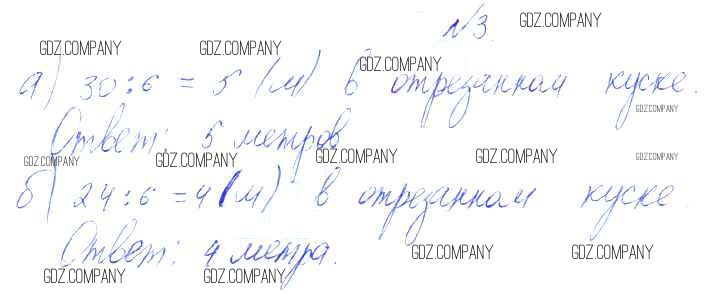 №3. GDZ.COMPANY
GDZ.COMPANY GDZ.COMPANY GDZ.COMPANY
а) 30:6 = 5 (м) в отрезанном куске.
GDZ.COMPANY
Ответ: 5 метров
GDZ.COMPANY GDZ.COMPANY GDZ.COMPANY GDZ.COMPANY GDZ.COMPANY
б) 24:6 = 4 (м) в отрезанном куске.
Ответ: 4 метра.
GDZ.COMPANY GDZ.COMPANY
GDZ.COMPANY GDZ.COMPANY